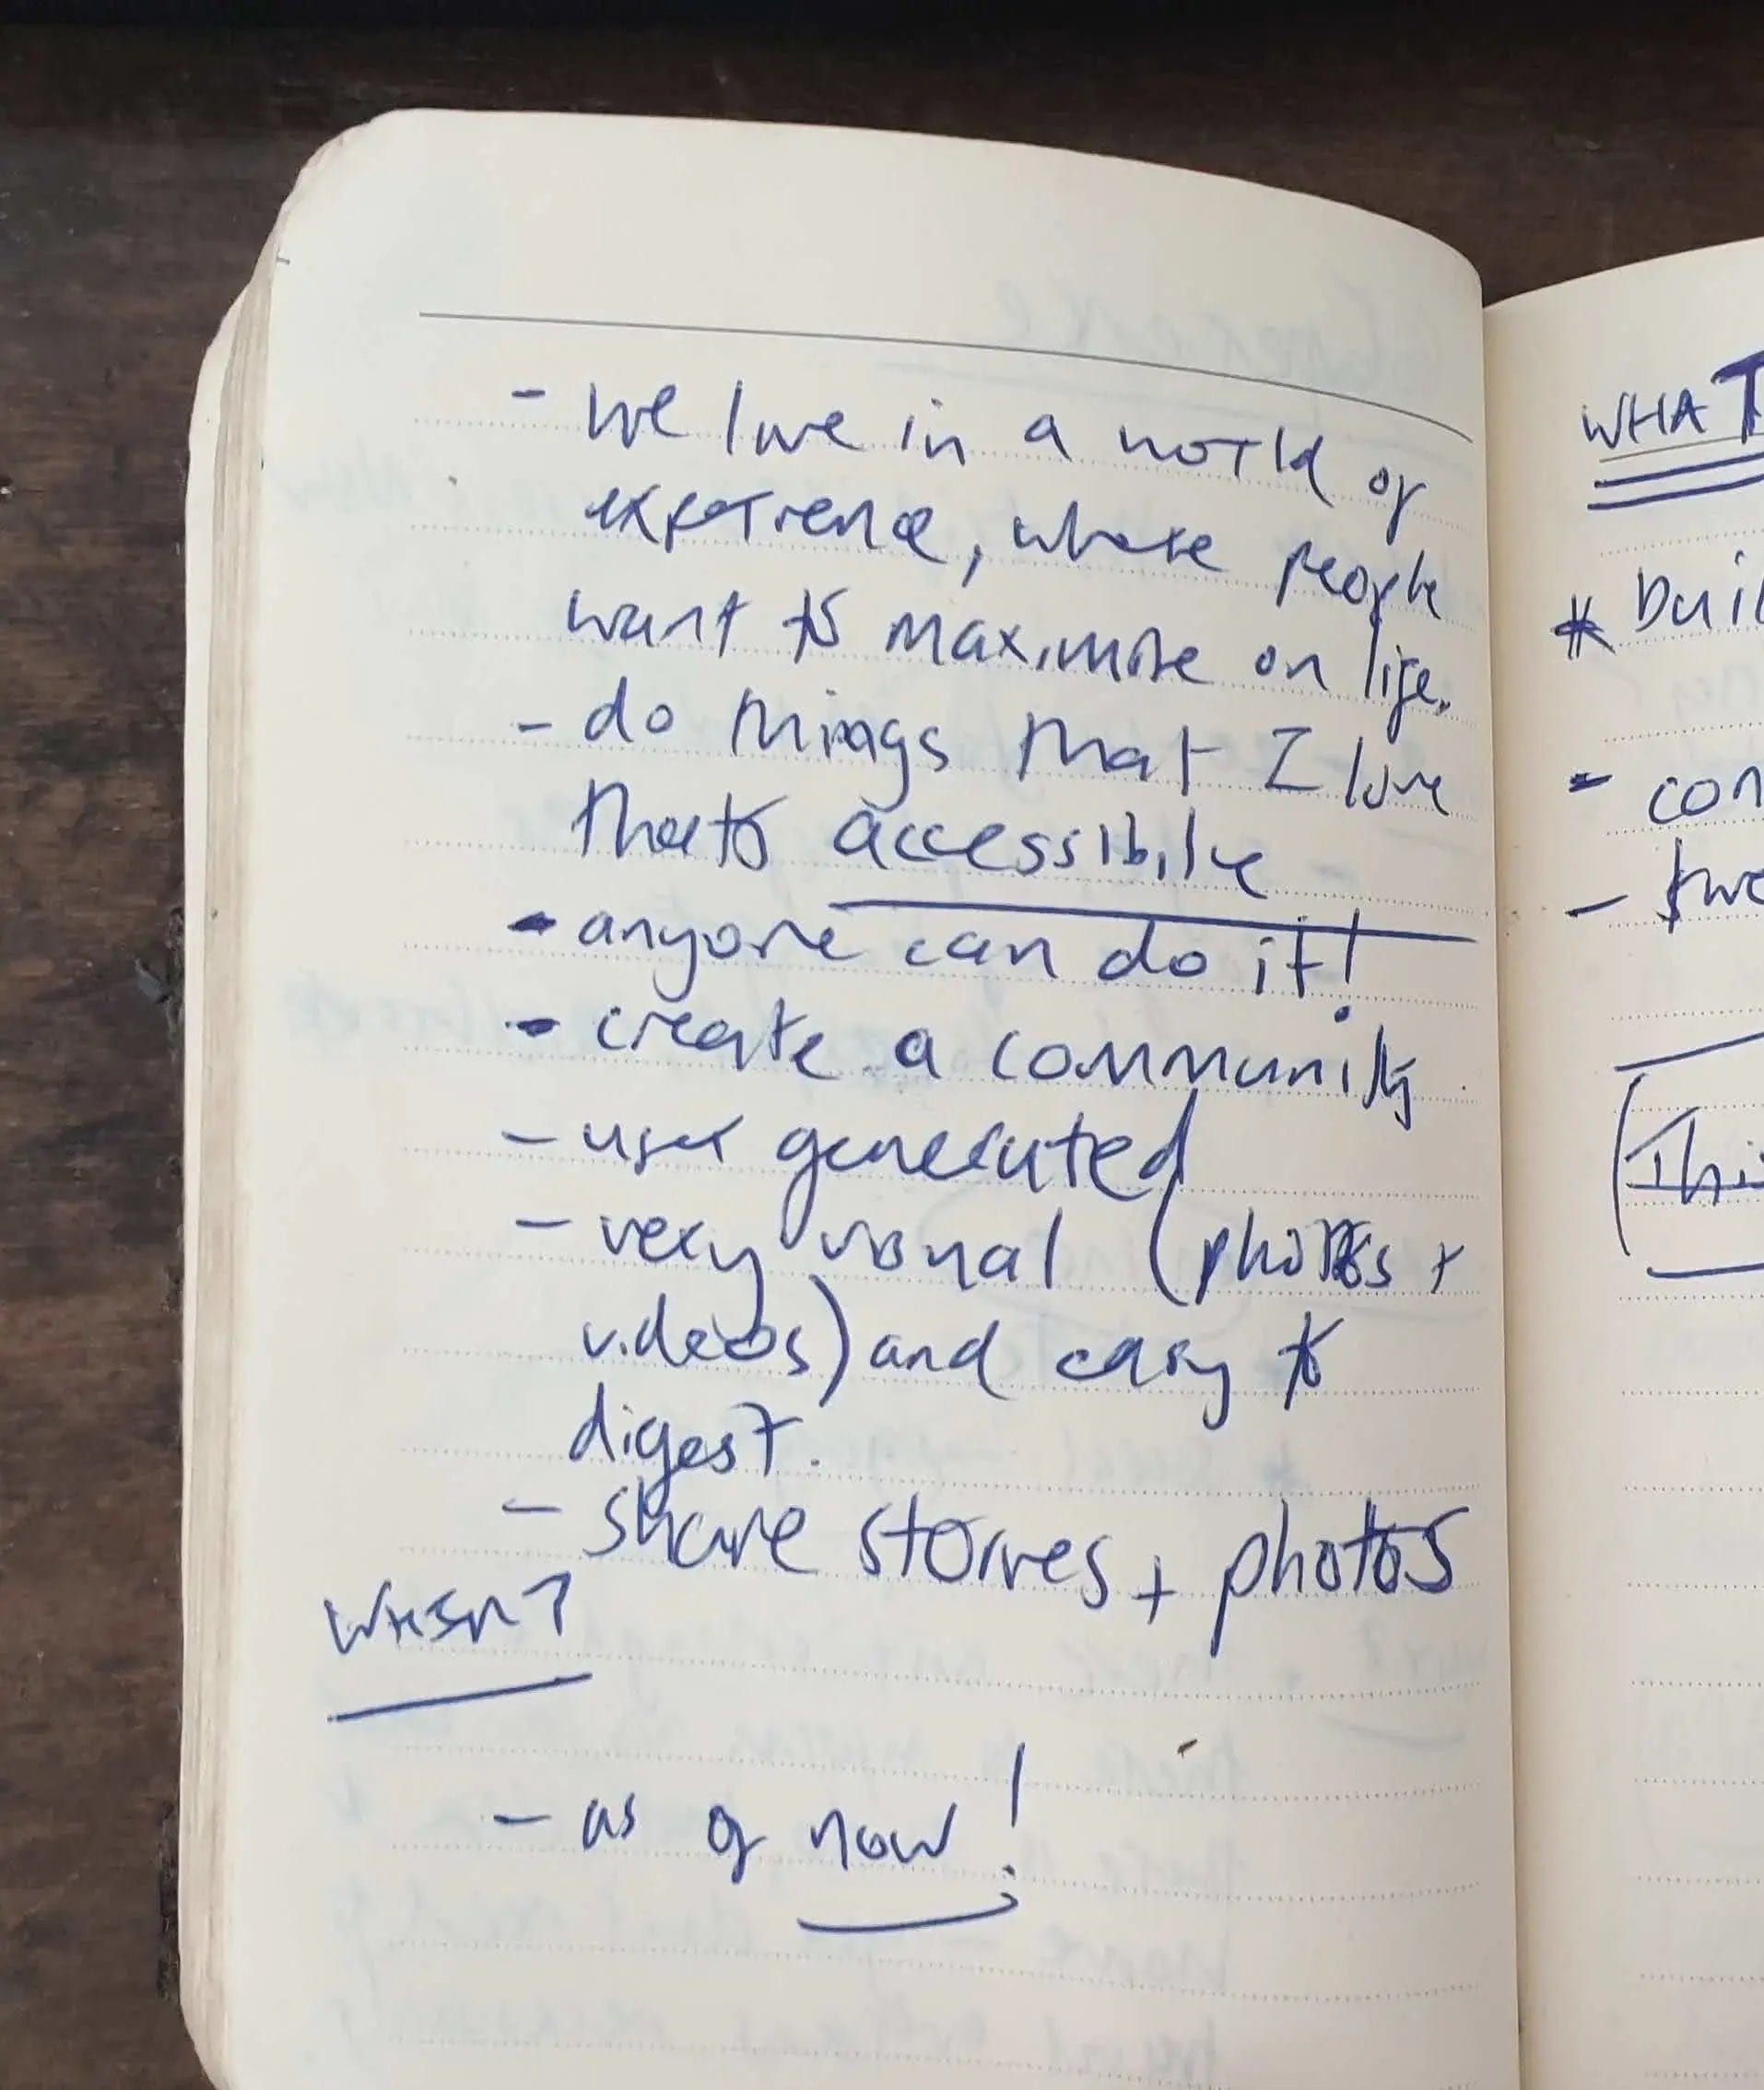 - We live in a world of
experience, where people
want to maximise on life.
- do things that I love
that's accessible
- anyone can do it!
- create a community
- user generated
- very visual (photos +
videos) and easy to
digest.
- share stories + photos
WHEN?
- as of now!
WHAT
* buil
- con
-
(This